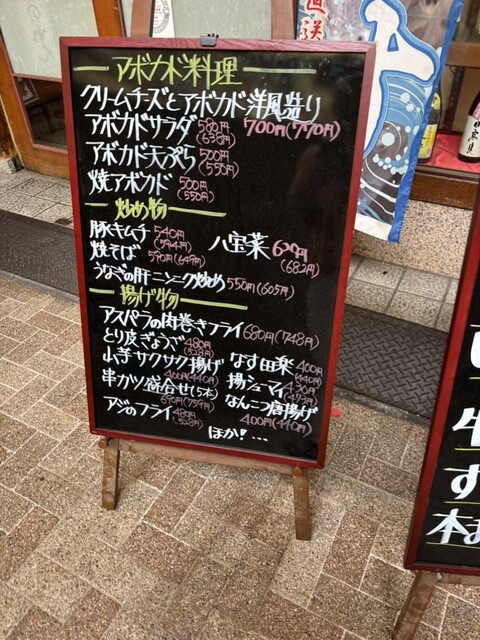 直送
アボカド料理
クリームチーズとアボカド洋風造り
700円(770円)
アボカドサラダ 580円(638円)
アボカド天ぷら 500円(550円)
焼アボカド 500円(550円)
炒め物
豚キムチ 540円(594円)
八宝菜 620円(682円)
焼そば 590円(649円)
うなぎの肝ニンニク炒め 550円(605円)
揚げ物
アスパラの肉巻きフライ 680円(748円)
とり皮ぎょうざ 480円(528円)
小ぎサクサク揚げ 400円(440円)
なす田楽 400円(440円)
串カツ盛合せ(5本) 690円(759円)
揚シューマイ 430円(473円)
アジのフライ 480円(528円)
なんこつ唐揚げ 400円(440円)
ほか!…
牛
す
本